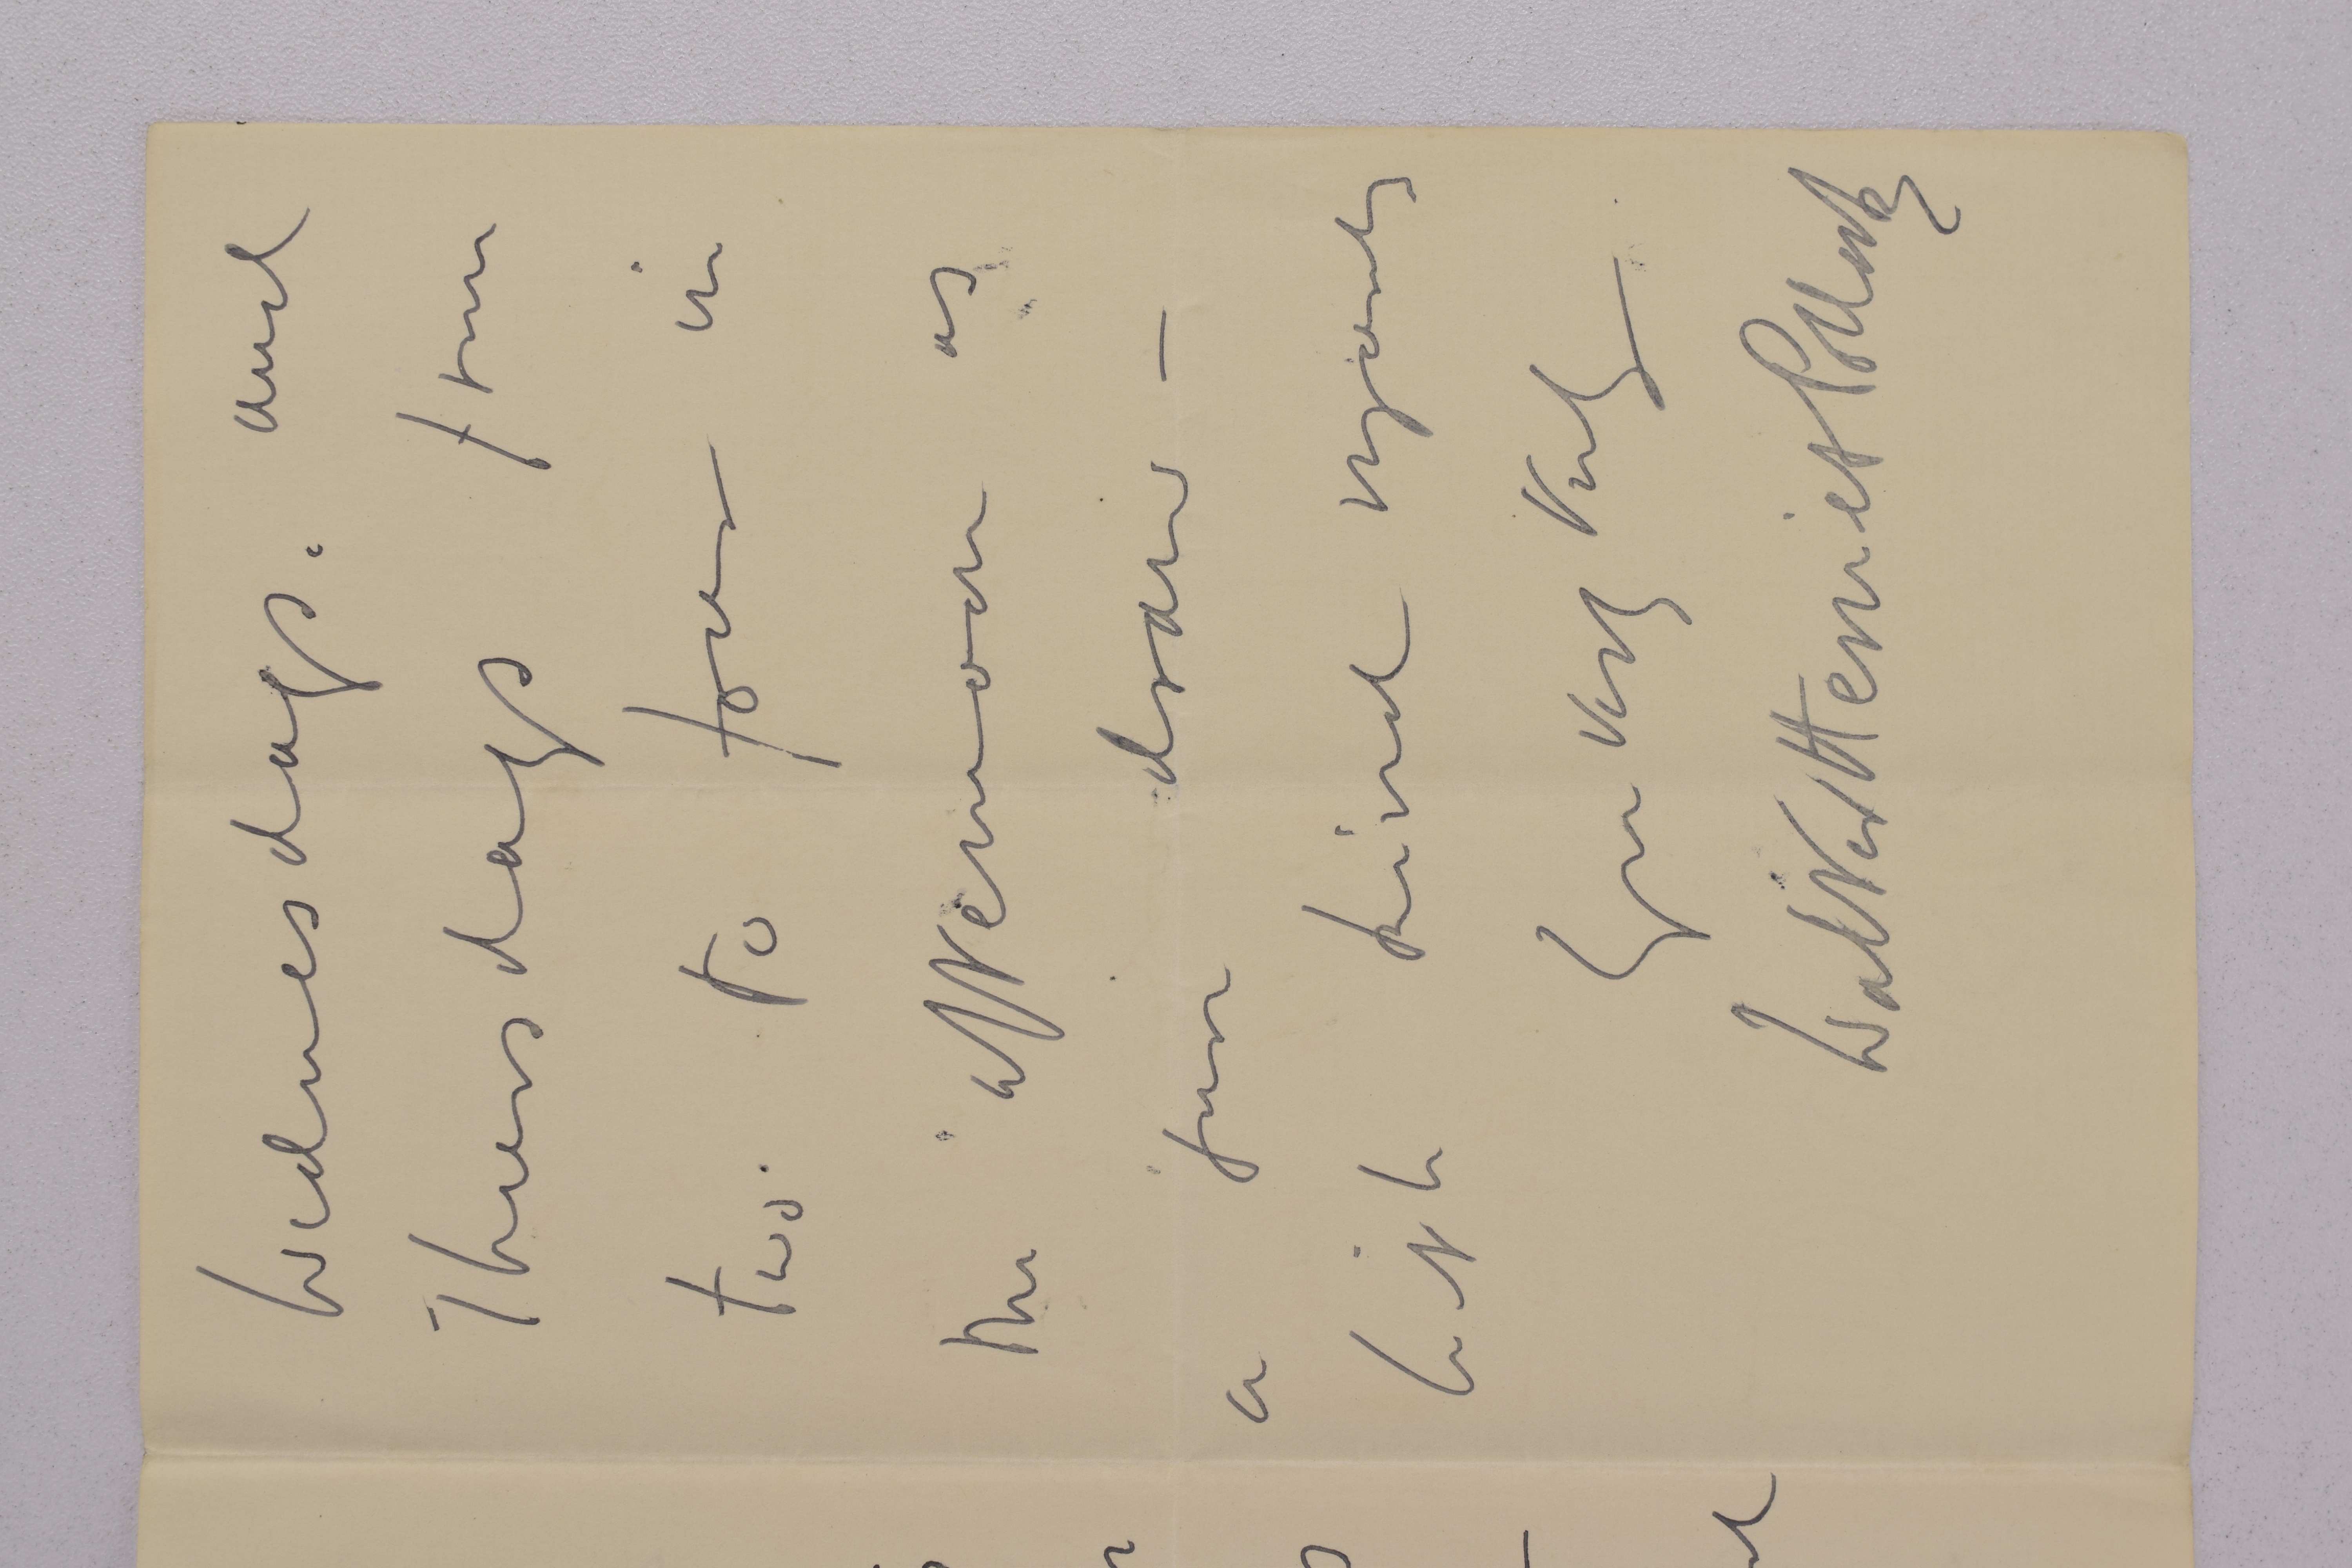 Wednesdays. and
Thursdays from
two to four in
the afternoon as
a juror drawn —
With kind regards
Yrs very truly
Walter Herries Pollock